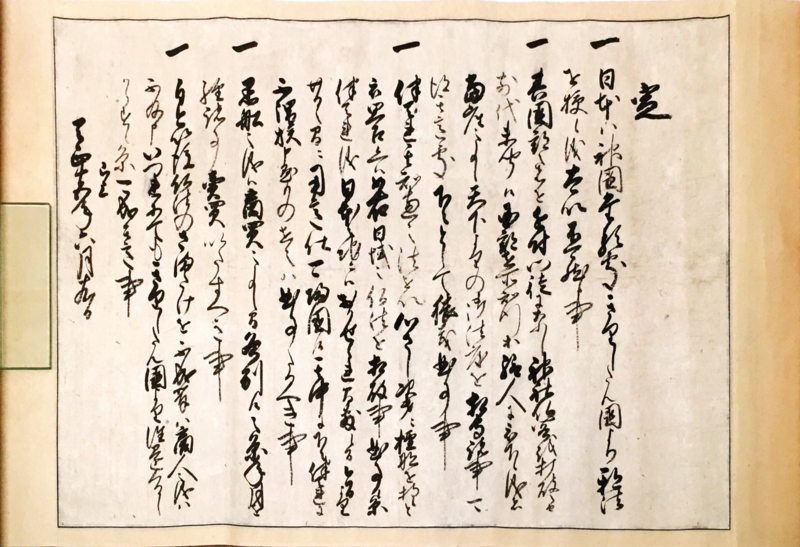 覚
一 日本ハ神国たる処きりしたん国より邪法
を授候儀太以不可然候事
一 其国郡之者を近付門徒になし神社仏閣を打破之
前代未聞候国郡在所知行等給人に被下候儀者
当座之事候天下よりの御法度を相守諸事可
得其意処下々として猥義曲事事
一 伴天連其知恵之法を以心さし次第ニ檀那を持候と
被思召候へハ如右日域之仏法を相破事曲事候条
伴天連儀日本之地ニハおかせられ間敷候間今日より
廿日之間ニ用意仕可帰国候其中に下々伴天連に
不謂族申懸もの在之ハ曲事たるへき事
一 黒船之儀ハ商買之事候間各別に候之条年月を
経諸事売買いたすへき事
一 自今以後仏法のさまたけを不成輩ハ商人之儀ハ
不及申いつれにてもきりしたん国より往還くる
しからす候条可成其意事
已上
天正十五年六月十九日